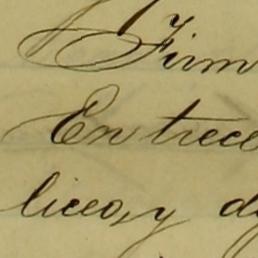 Firm
En trece
liceo, y d